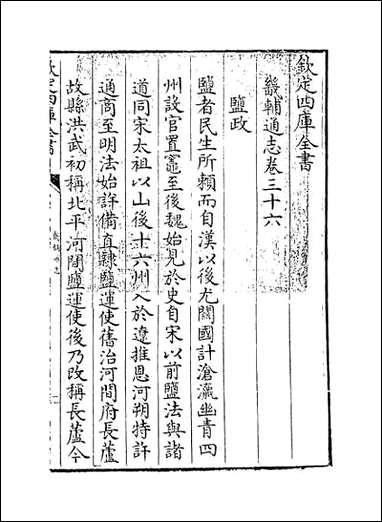 欽定四庫全書
畿輔通志卷三十六
鹽政
鹽者民生所賴而自漢以後尤關國計滄瀛幽青四
州設官置竈至後魏始見於史自宋以前鹽法與諸
道同宋太祖以山後十六州入於遼推恩河朔特許
通商至明法始詳備直隸鹽運使舊治河間府長蘆
故縣洪武初稱北平河間鹽運使後乃改稱長蘆今
欽定四庫全書